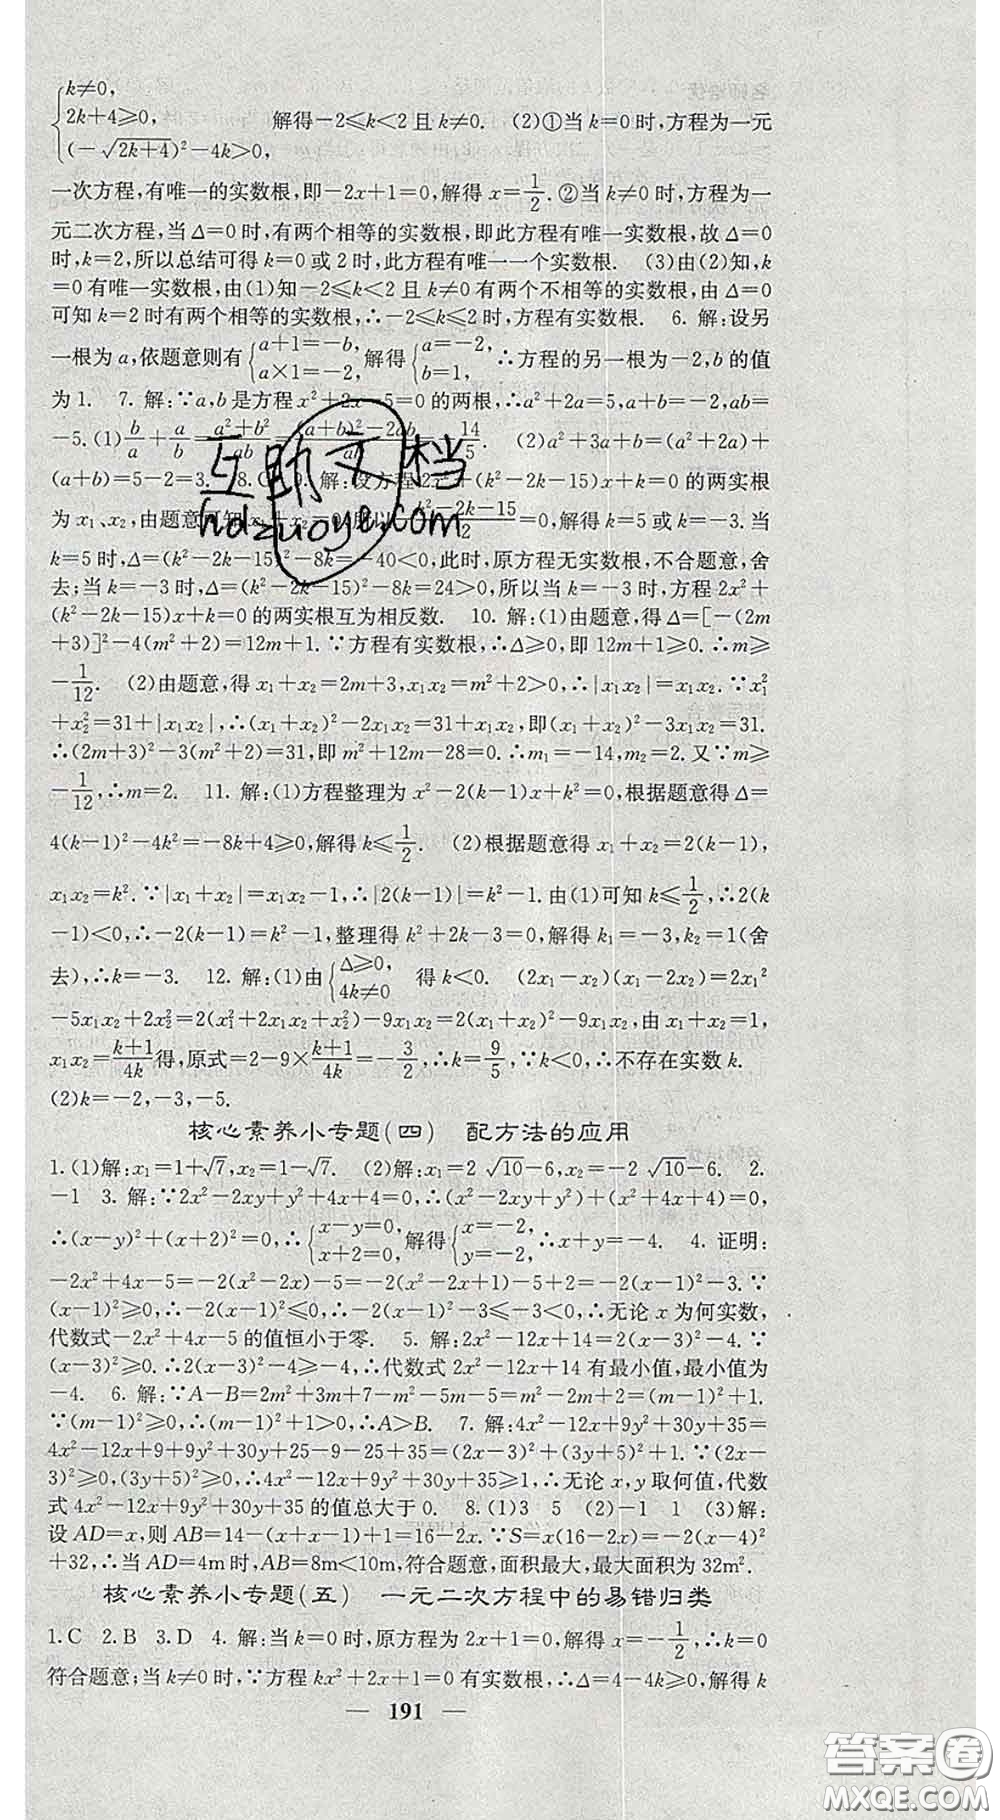 {k≠0, 2k+4≥0, (-√(2k+4))²-4k>0, 解得-2≤k<2且k≠0. (2)①当k=0时,方程为一元
一次方程,有唯一的实数根,即-2x+1=0,解得x=1/2.②当k≠0时,方程为一
元二次方程,当Δ=0时,有两个相等的实数根,即此方程有唯一实数根,故Δ=0
时,k=2,所以总结可得k=0或2时,此方程有唯一一个实数根. (3)由(2)知,k
=0有唯一实数根,由(1)知-2≤k<2且k≠0有两个不相等的实数根,由Δ=0
可知k=2时有两个相等的实数根,∴-2≤k≤2时,方程有实数根. 6. 解:设另
一根为a,依题意则有{a+1=-b, a×1=-2, 解得{a=-2, b=1, ∴方程的另一根为-2,b的值
为1. 7. 解:∵a,b是方程x²+2x-5=0的两根,∴a²+2a=5,a+b=-2,ab=
-5.(1)b/a+a/b=(a²+b²)/ab=((a+b)²-2ab)/ab=-14/5. (2)a²+3a+b=(a²+2a)+
(a+b)=5-2=3. 8.C 9. 解:设方程2x²+(k²-2k-15)x+k=0的两实根
为x₁、x₂,由题意可知x₁+x₂=0,所以-(k²-2k-15)/2=0,解得k=5或k=-3.当
k=5时,Δ=(k²-2k-15)²-8k=-40<0,此时,原方程无实数根,不合题意,舍
去;当k=-3时,Δ=(k²-2k-15)²-8k=24>0,所以当k=-3时,方程2x²+
(k²-2k-15)x+k=0的两实根互为相反数. 10. 解:(1)由题意,得Δ=[-(2m
+3)]²-4(m²+2)=12m+1.∵方程有实数根,∴Δ≥0,即12m+1≥0.∴m≥
-1/12. (2)由题意,得x₁+x₂=2m+3,x₁x₂=m²+2>0,∴|x₁x₂|=x₁x₂.∵x₁²
+x₂²=31+|x₁x₂|,∴(x₁+x₂)²-2x₁x₂=31+x₁x₂,即(x₁+x₂)²-3x₁x₂=31.
∴(2m+3)²-3(m²+2)=31,即m²+12m-28=0.∴m₁=-14,m₂=2.又∵m≥
-1/12,∴m=2. 11. 解:(1)方程整理为x²-2(k-1)x+k²=0,根据题意得Δ=
4(k-1)²-4k²=-8k+4≥0,解得k≤1/2. (2)根据题意得x₁+x₂=2(k-1),
x₁x₂=k².∵|x₁+x₂|=x₁x₂-1,∴|2(k-1)|=k²-1.由(1)可知k≤1/2,∴2(k
-1)<0,∴-2(k-1)=k²-1,整理得k²+2k-3=0,解得k₁=-3,k₂=1(舍
去),∴k=-3. 12. 解:(1)由{Δ≥0, 4k≠0 得k<0. (2x₁-x₂)(x₁-2x₂)=2x₁²
-5x₁x₂+2x₂²=2(x₁²+2x₁x₂+x₂²)-9x₁x₂=2(x₁+x₂)²-9x₁x₂,由x₁+x₂=1,
x₁x₂=(k+1)/4k得,原式=2-9×(k+1)/4k=-3/2,∴k=9/5,∵k<0,∴不存在实数k.
(2)k=-2,-3,-5.
核心素养小专题(四) 配方法的应用
1.(1)解:x₁=1+√7,x₂=1-√7. (2)解:x₁=2√10-6,x₂=-2√10-6. 2.
-1 3. 解:∵2x²-2xy+y²+4x+4=0,∴(x²-2xy+y²)+(x²+4x+4)=0,
∴(x-y)²+(x+2)²=0,∴{x-y=0, x+2=0, 解得{x=-2, y=-2, ∴x+y=-4. 4. 证明:
-2x²+4x-5=-2(x²-2x)-5=-2(x²-2x+1)-5+2=-2(x-1)²-3.∵
(x-1)²≥0,∴-2(x-1)²≤0,∴-2(x-1)²-3≤-3<0,∴无论x为何实数,
代数式-2x²+4x-5的值恒小于零. 5. 解:2x²-12x+14=2(x-3)²-4.∵
(x-3)²≥0.∴2(x-3)²-4≥-4,∴代数式2x²-12x+14有最小值,最小值为
-4. 6. 解:∵A-B=2m²+3m+7-m²-5m-5=m²-2m+2=(m-1)²+1.
∵(m-1)²≥0,∴(m-1)²+1>0,∴A>B. 7. 解:4x²-12x+9y²+30y+35=
4x²-12x+9+9y²+30y+25-9-25+35=(2x-3)²+(3y+5)²+1.∵(2x-
3)²≥0,(3y+5)²≥0,∴4x²-12x+9y²+30y+35≥1,∴无论x,y取何值,代数
式4x²-12x+9y²+30y+35的值总大于0. 8.(1)3 5 (2)-1 1 (3)解:
设AD=x,则AB=14-(x+x-1)+1=16-2x.∵S=x(16-2x)=-2(x-4)²
+32,∴当AD=4m时,AB=8m<10m,符合题意,面积最大,最大面积为32m².
核心素养小专题(五) 一元二次方程中的易错归类
1.C 2.B 3.D 4. 解:当k=0时,原方程为2x+1=0,解得x=-1/2,∴k=0
符合题意;当k≠0时,∵方程kx²+2x+1=0有实数根,∴Δ=4-4k≥0,解得k
— 191 —
互助文档
hdzuoye.com
答案圈
MXQE.COM